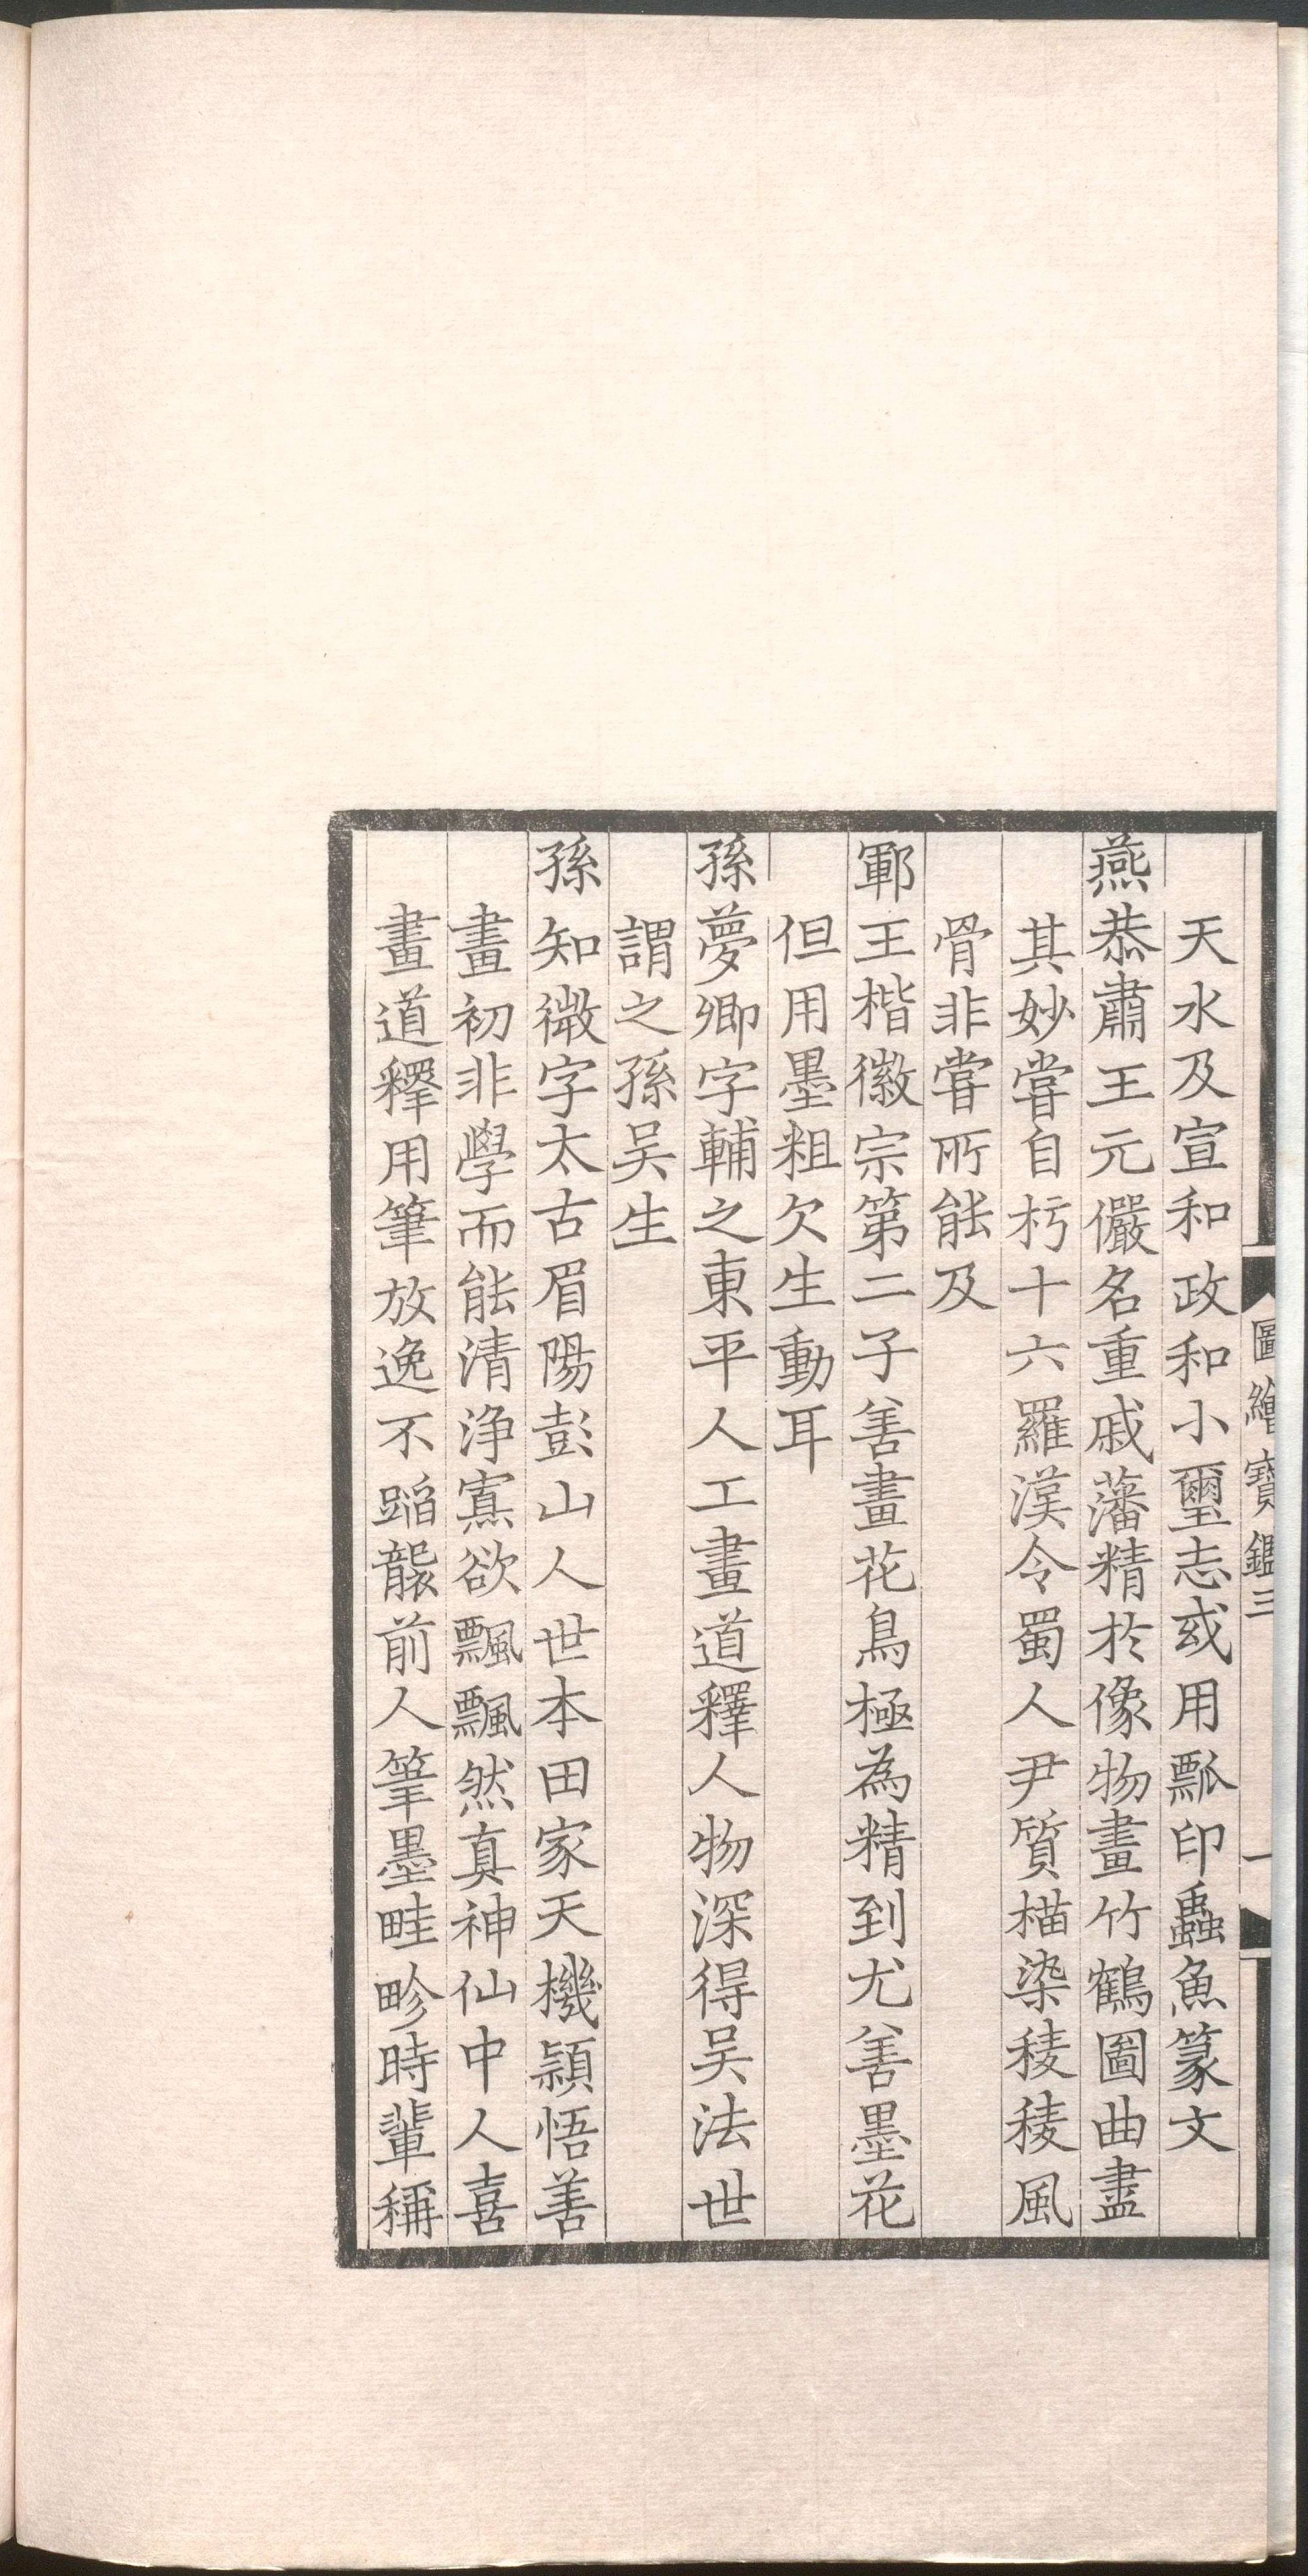 圖繪寶鑑三
一
天水及宣和政和小璽志或用瓢印蟲魚篆文
燕恭肅王元儼名重戚藩精於像物畫竹鶴圖曲盡
其妙嘗自杇十六羅漢令蜀人尹質描染稜稜風
骨非嘗所能及
鄆王楷徽宗第二子善畫花鳥極為精到尤善墨花
但用墨粗欠生動耳
孫夢卿字輔之東平人工畫道釋人物深得吴法世
謂之孫吴生
孫知微字太古眉陽彭山人世本田家天機穎悟善
畫初非學而能清浄寡欲飄飄然真神仙中人喜
畫道釋用筆放逸不蹈襲前人筆墨畦畛時輩稱